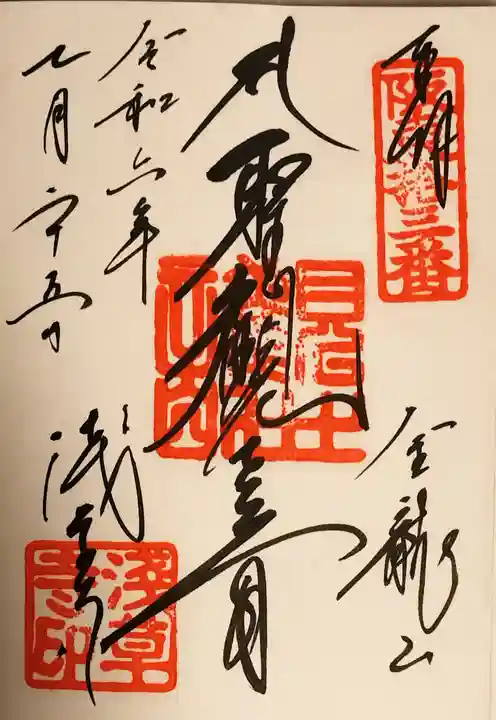 奉拝
坂東十三番
金龍山
聖観音
令和六年
七月二十五日
浅草寺
浅草寺印